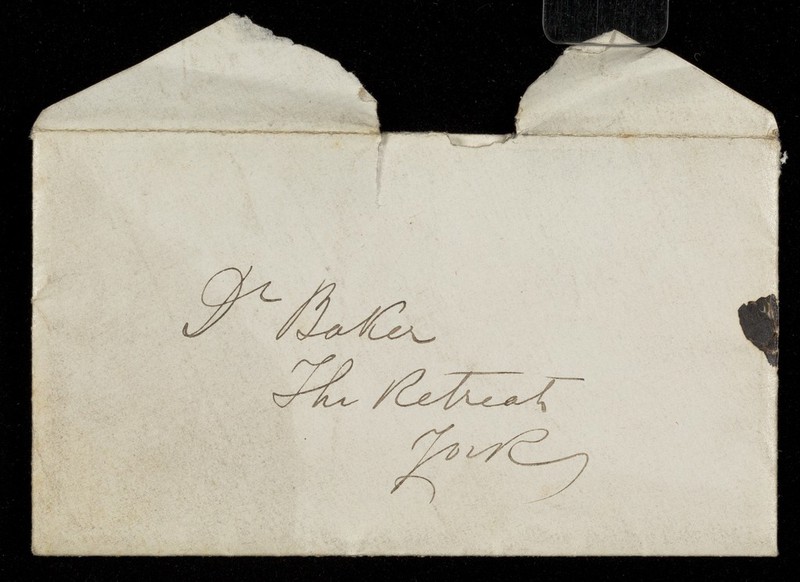 Dr Baker
The Retreat
York